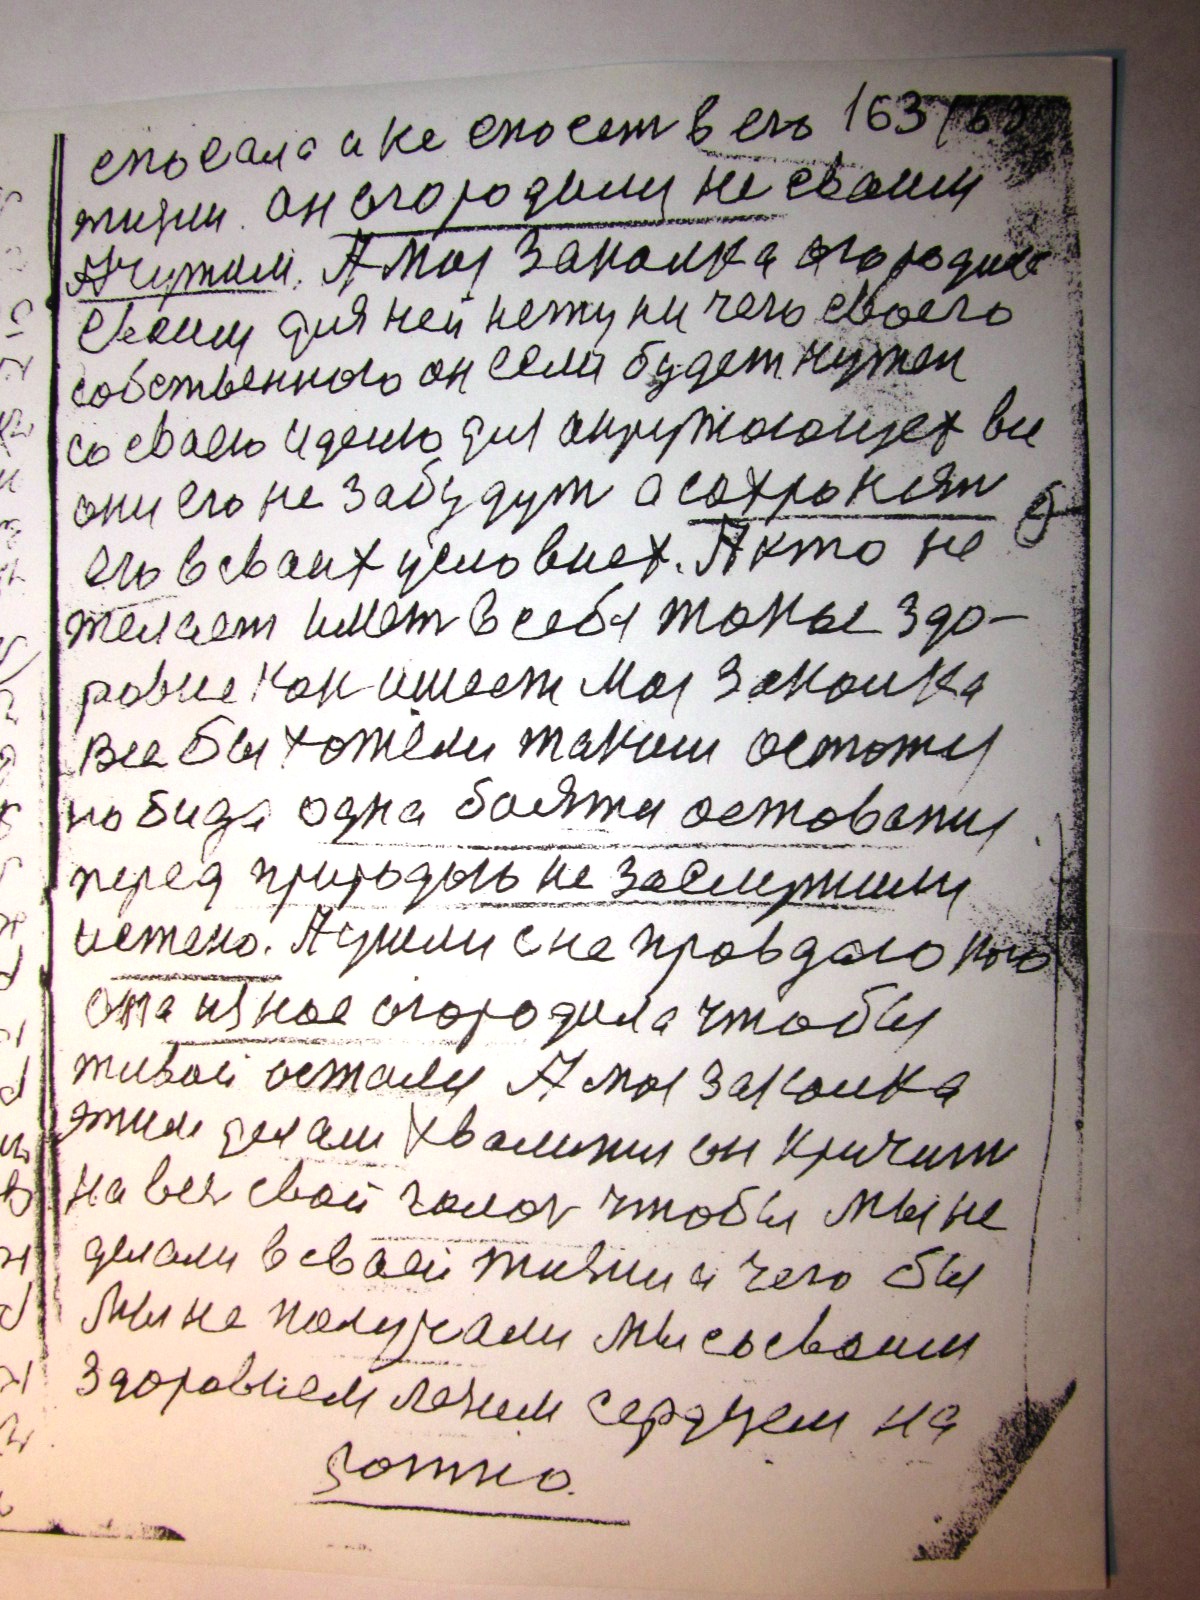 спосала и не спосет в его 163/69
жизни. он огородили не своим
А чужим. А моя закалка огородила
своим для ней нежу ни чего своего
собственного он если будет нужен
со своею идеею для окружающих
они его не забудут а сохронеят
его в своих условиех. А кто не
желает имет в себя токое здо-
ровие как имеет моя закалка
все бы хотели таким остатся
но бида одна боятся оставатся
перед природыю не заслужили
истено. А ушли с не правдаю кого
она из нас огородила чтобы
живой остался А моя закалка
этим делам хвалится он кричит
на весь свой голос чтобы мы не
делали в своей жизни а чего бы
мы не получали мы со своим
здоровием легким сердцем на